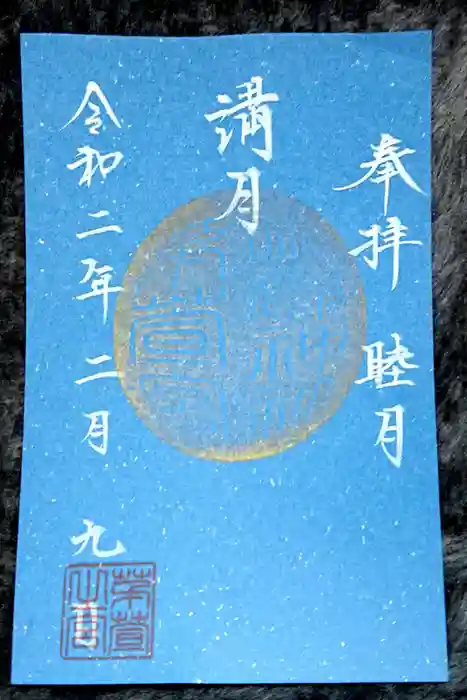 奉拝 睦月
満月
令和二年二月 九日